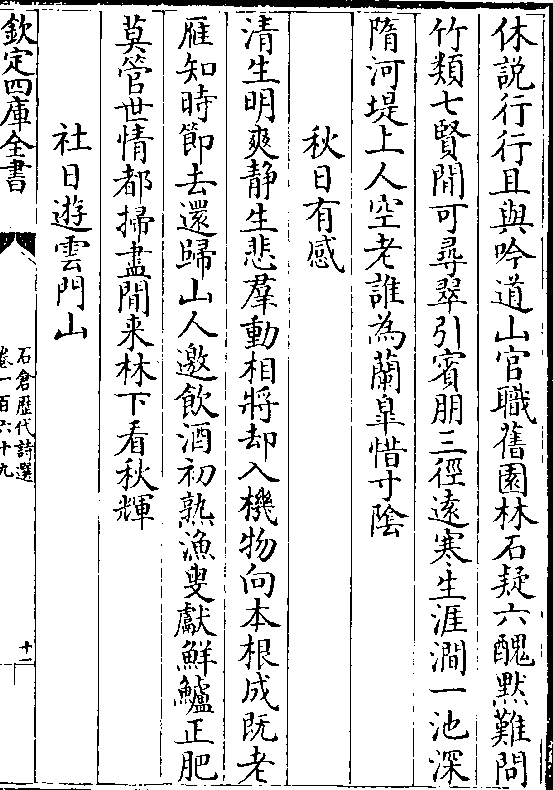 休説行行且與吟道山官職舊園林石疑六醜黙難問
竹類七賢閒可尋翠引賓朋三徑遠寒生涯澗一池深
隋河堤上人空老誰為蘭臯惜寸陰
秋日有感
清生明爽静生悲羣動相將却入機物向本根成既老
雁知時節去還歸山人邀飲酒初熟漁叟獻鮮鱸正肥
莫管世情都掃盡閒来林下看秋輝
社日遊雲門山
欽定四庫全書
石倉歴代詩選
卷一百六十九
十一